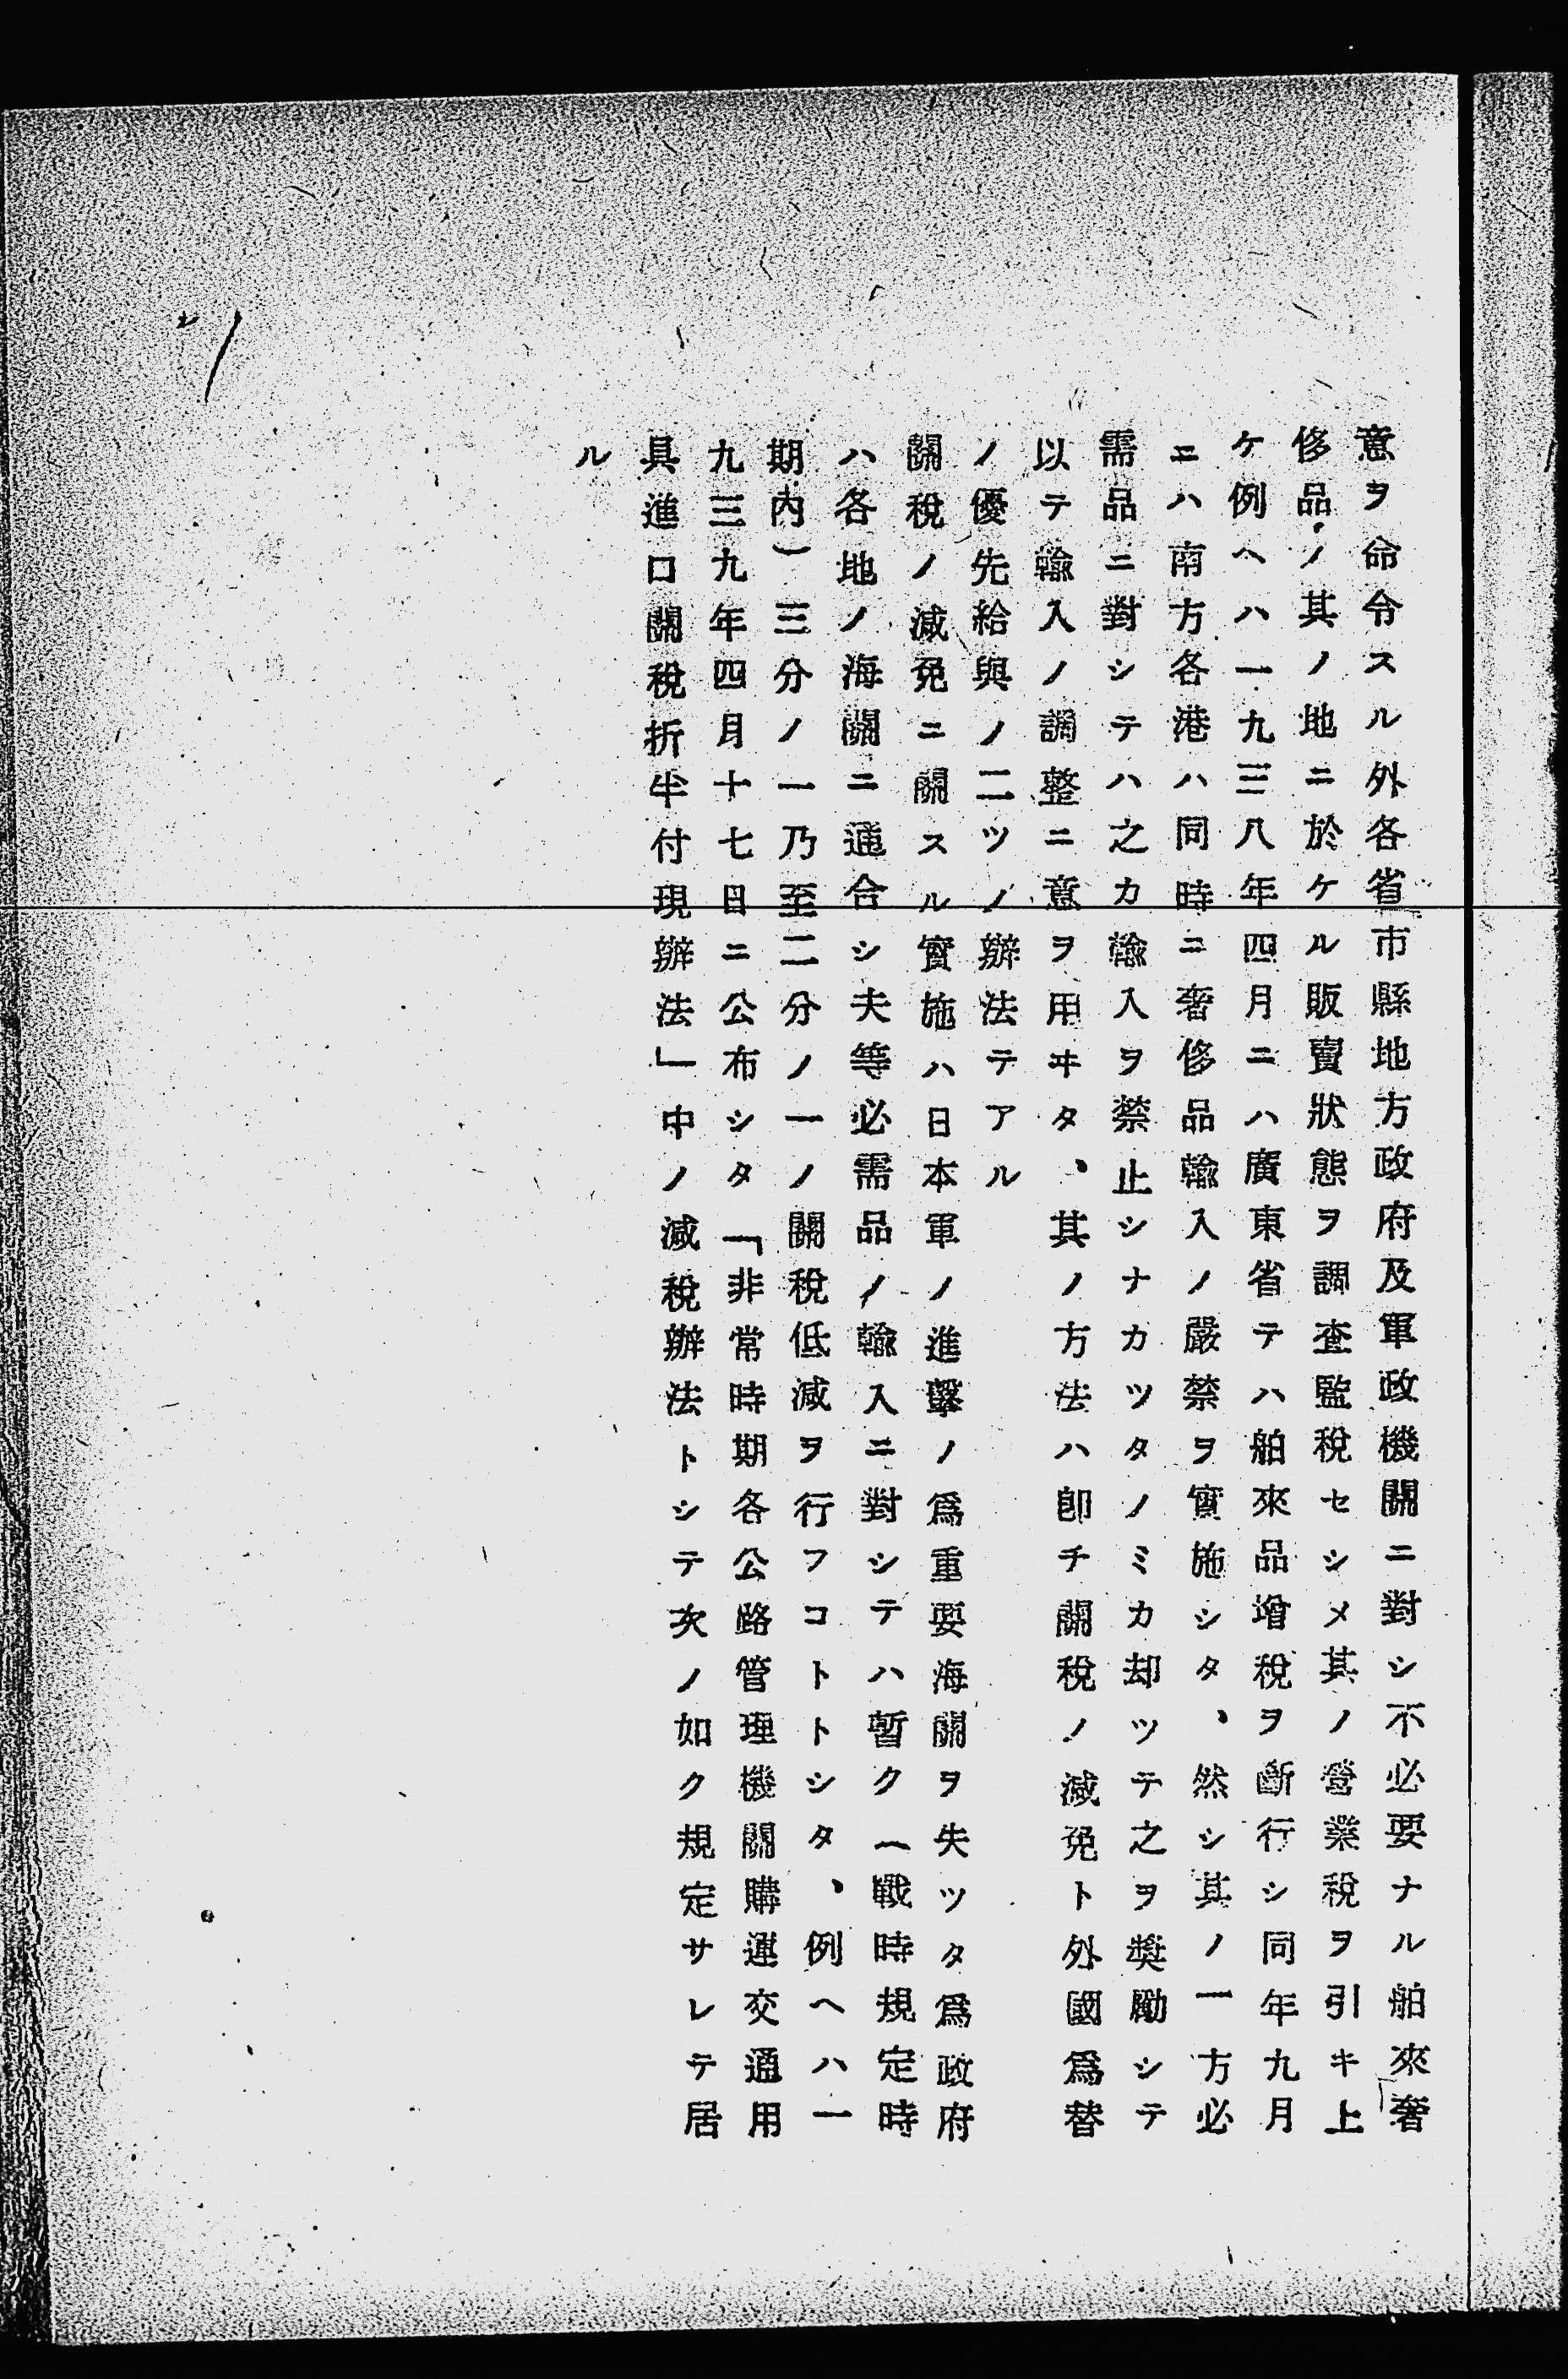 意ヲ命令スル外各省市縣地方政府及軍政機關ニ對シ不必要ナル舶來奢
侈品ノ其ノ地ニ於ケル販賣狀態ヲ調査監税セシメ其ノ營業税ヲ引キ上
ケ例ヘハ一九三八年四月ニハ廣東省テハ舶來品增税ヲ斷行シ同年九月
ニハ南方各港ハ同時ニ奢侈品輸入ノ嚴禁ヲ實施シタ、然シ其ノ一方必
需品ニ對シテハ之カ輸入ヲ禁止シナカツタノミカ却ツテ之ヲ奬勵シテ
以テ輸入ノ調整ニ意ヲ用ヰタ、其ノ方法ハ卽チ關税ノ減免ト外國爲替
ノ優先給與ノ二ツノ辦法テアル
關税ノ減免ニ關スル實施ハ日本軍ノ進擊ノ爲重要海關ヲ失ツタ爲政府
ハ各地ノ海關ニ通令シ夫等必需品ノ輸入ニ對シテハ暫ク（戰時規定時
期內）三分ノ一乃至二分ノ一ノ關税低減ヲ行フコトトシタ、例ヘハ一
九三九年四月十七日ニ公布シタ「非常時期各公路管理機關購運交通用
具進口關税折半付現辦法」中ノ減税辦法トシテ次ノ如ク規定サレテ居
ル